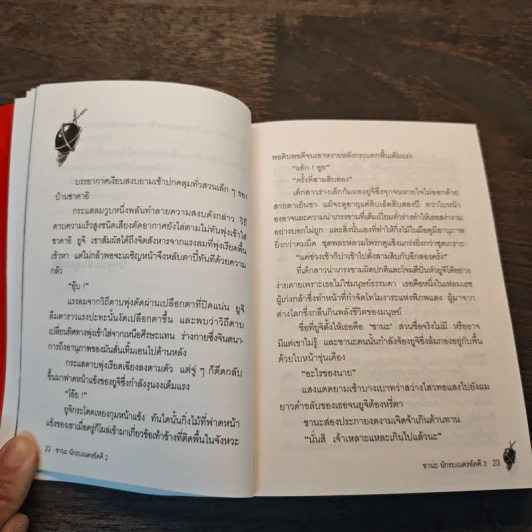 บรรยากาศเงียบสงบยามเช้าปกคลุมทั่วสวนเล็ก ๆ ของ
บ้านซาคาอิ
กระแสลมวูบหนึ่งพลันทำลายความสงบดังกล่าว วิถี
ดาบความเร็วสูงชนิดเสียงตัดอากาศยังไล่ตามไม่ทันพุ่งเข้าใส่
ซาคาอิ ยูจิ เขาสัมผัสได้ถึงจิตสังหารจากแรงลมที่พุ่งเรียดพื้น
เข้าหา แต่ไม่กล้าพอจะเผชิญหน้าจึงหลับตาปี๋ทันทีด้วยความ
กลัว
"อุ๊บ !"
แรงลมจากวิถีดาบพุ่งตัดผ่านเปลือกตาที่ปิดแน่น ยูจิ
ลืมตาราวแรงปะทะนั้นงัดเปลือกตาขึ้น และพบว่าวิถีดาบ
เปลี่ยนทิศทางพุ่งเข้าใส่จากเหนือศีรษะแทน ร่างกายซึ่งจินตนา-
การถึงอานุภาพของมันสั่นเทิ้มเอนไปด้านหลัง
กระแสดาบพุ่งเรียดเฉียงลงตามตัว แต่จู่ ๆ ก็ดีดกลับ
ขึ้นมาฟาดหน้าแข้งของยูจิซึ่งกำลังงุนงงเต็มแรง
"โอ๊ย !"
ยูจิกระโดดเหยงกุมหน้าแข้ง ทันใดนั้นกิ่งไม้ที่ฟาดหน้า
แข้งของเขาเมื่อครู่ก็ไล่เข้ามาเกี่ยวข้อเท้าข้างที่ติดพื้นในจังหวะ
22 ชานะ นักรบเนตรอัคคี 2
พอดิบพอดีจนเขาหงายหลังกระแทกพื้นเต็มแรง
"แอ้ก ! อูย"
"ครั้งที่สามสิบสอง"
เด็กสาวร่างเล็กก้มมองยูจิซึ่งจุกจนหายใจไม่ออกด้วย
สายตาเย็นชา แม้จะดูอายุแค่สิบเอ็ดสิบสองปี ทว่าใบหน้า
องอาจและความน่าเกรงขามที่เต็มเปี่ยมทั่วร่างทำให้เธอสง่างาม
อย่างบอกไม่ถูก และสิ่งนั้นเองที่ทำให้กิ่งไม้ในมือดูมีอานุภาพ
ยิ่งกว่าคมมีด ชุดพละหลวมโพรกดูแข็งแกร่งยิ่งกว่าชุดเกราะ
"แค่ช่วงเช้าก็ปาเข้าไปตั้งสามสิบกับอีกสองครั้ง"
ที่เด็กสาวน่าเกรงขามผิดปกติและโจมตีปั่นหัวยูจิได้อย่าง
ง่ายดายเพราะเธอไม่ใช่มนุษย์ธรรมดา เธอคือหนึ่งในเฟลมเฮซ
ผู้เก่งกล้าซึ่งทำหน้าที่กำจัดโทโมงาระแห่งพิภพแดง ผู้มาจาก
ต่างโลกซึ่งกลืนกินพลังชีวิตของมนุษย์
ชื่อที่ยูจิตั้งให้เธอคือ "ชานะ" ส่วนชื่อจริงไม่มี หรืออาจ
มีแต่เขาไม่รู้ และชานะคนนั้นกำลังจ้องยูจิซึ่งล้มกองอยู่กับพื้น
ด้วยใบหน้าขุ่นเคือง
"อะไรของนาย"
แสงแดดยามเช้าบางเบาทว่าสว่างไสวทอแสงไปยังผม
ยาวดำขลับของเธอจนยูจิต้องหรี่ตา
ชานะส่องประกายงดงามเจิดจ้าเกินต้านทาน
"นั่นสิ เจ้าเหลาะแหละเกินไปแล้วนะ"
ชานะ นักรบเนตรอัคคี 2 23